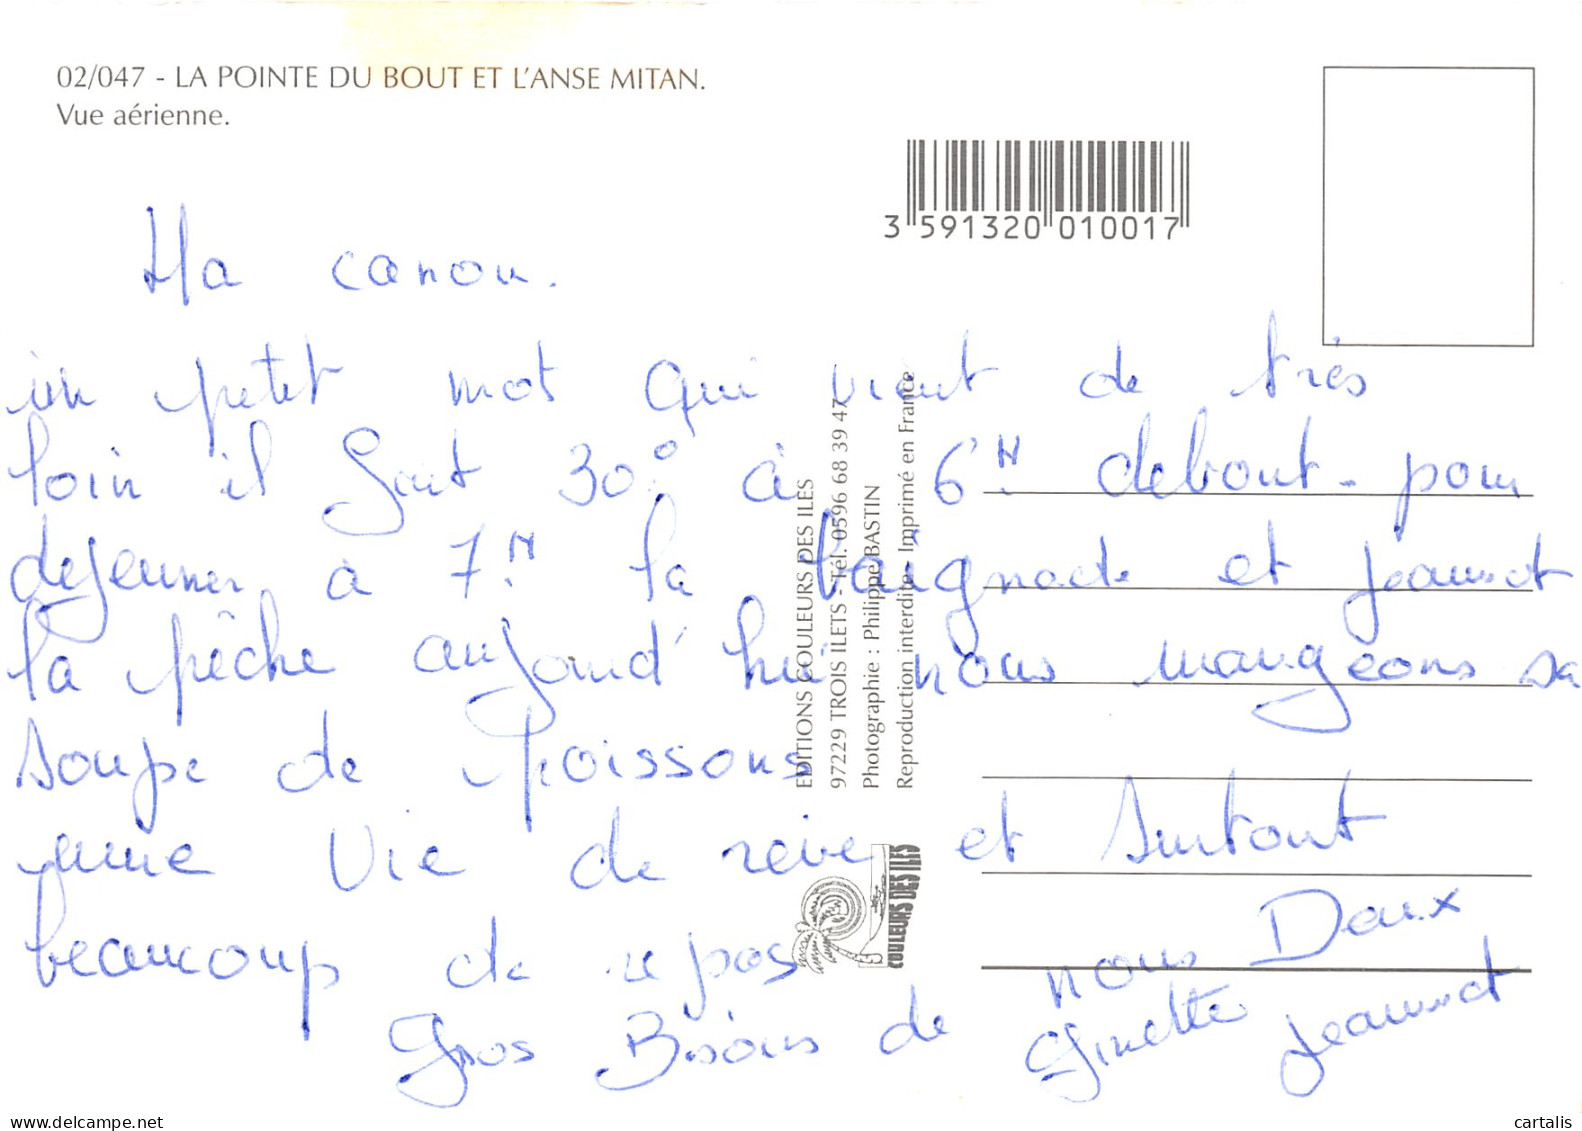 02/047 - LA POINTE DU BOUT ET L'ANSE MITAN.
Vue aérienne.
3 591320 010017
Ma canou.
un petit mot qui vient de très
loin il fait 30° à 6H debout - pour
dejeuner à 7H la baignade et jeannot
la pêche aujourd'hui nous mangeons sa
soupe de poissons
une vie de reve et surtout
beaucoup de repos
Gros Bisous de nous Deux
Ginette Jeannot
EDITIONS COULEURS DES ILES
97229 TROIS ILETS - Tél. 0596 68 39 47
Photographie : Philippe BASTIN
Reproduction interdite - Imprimé en France
COULEURS DES ILES
delcampe.net
cartalis